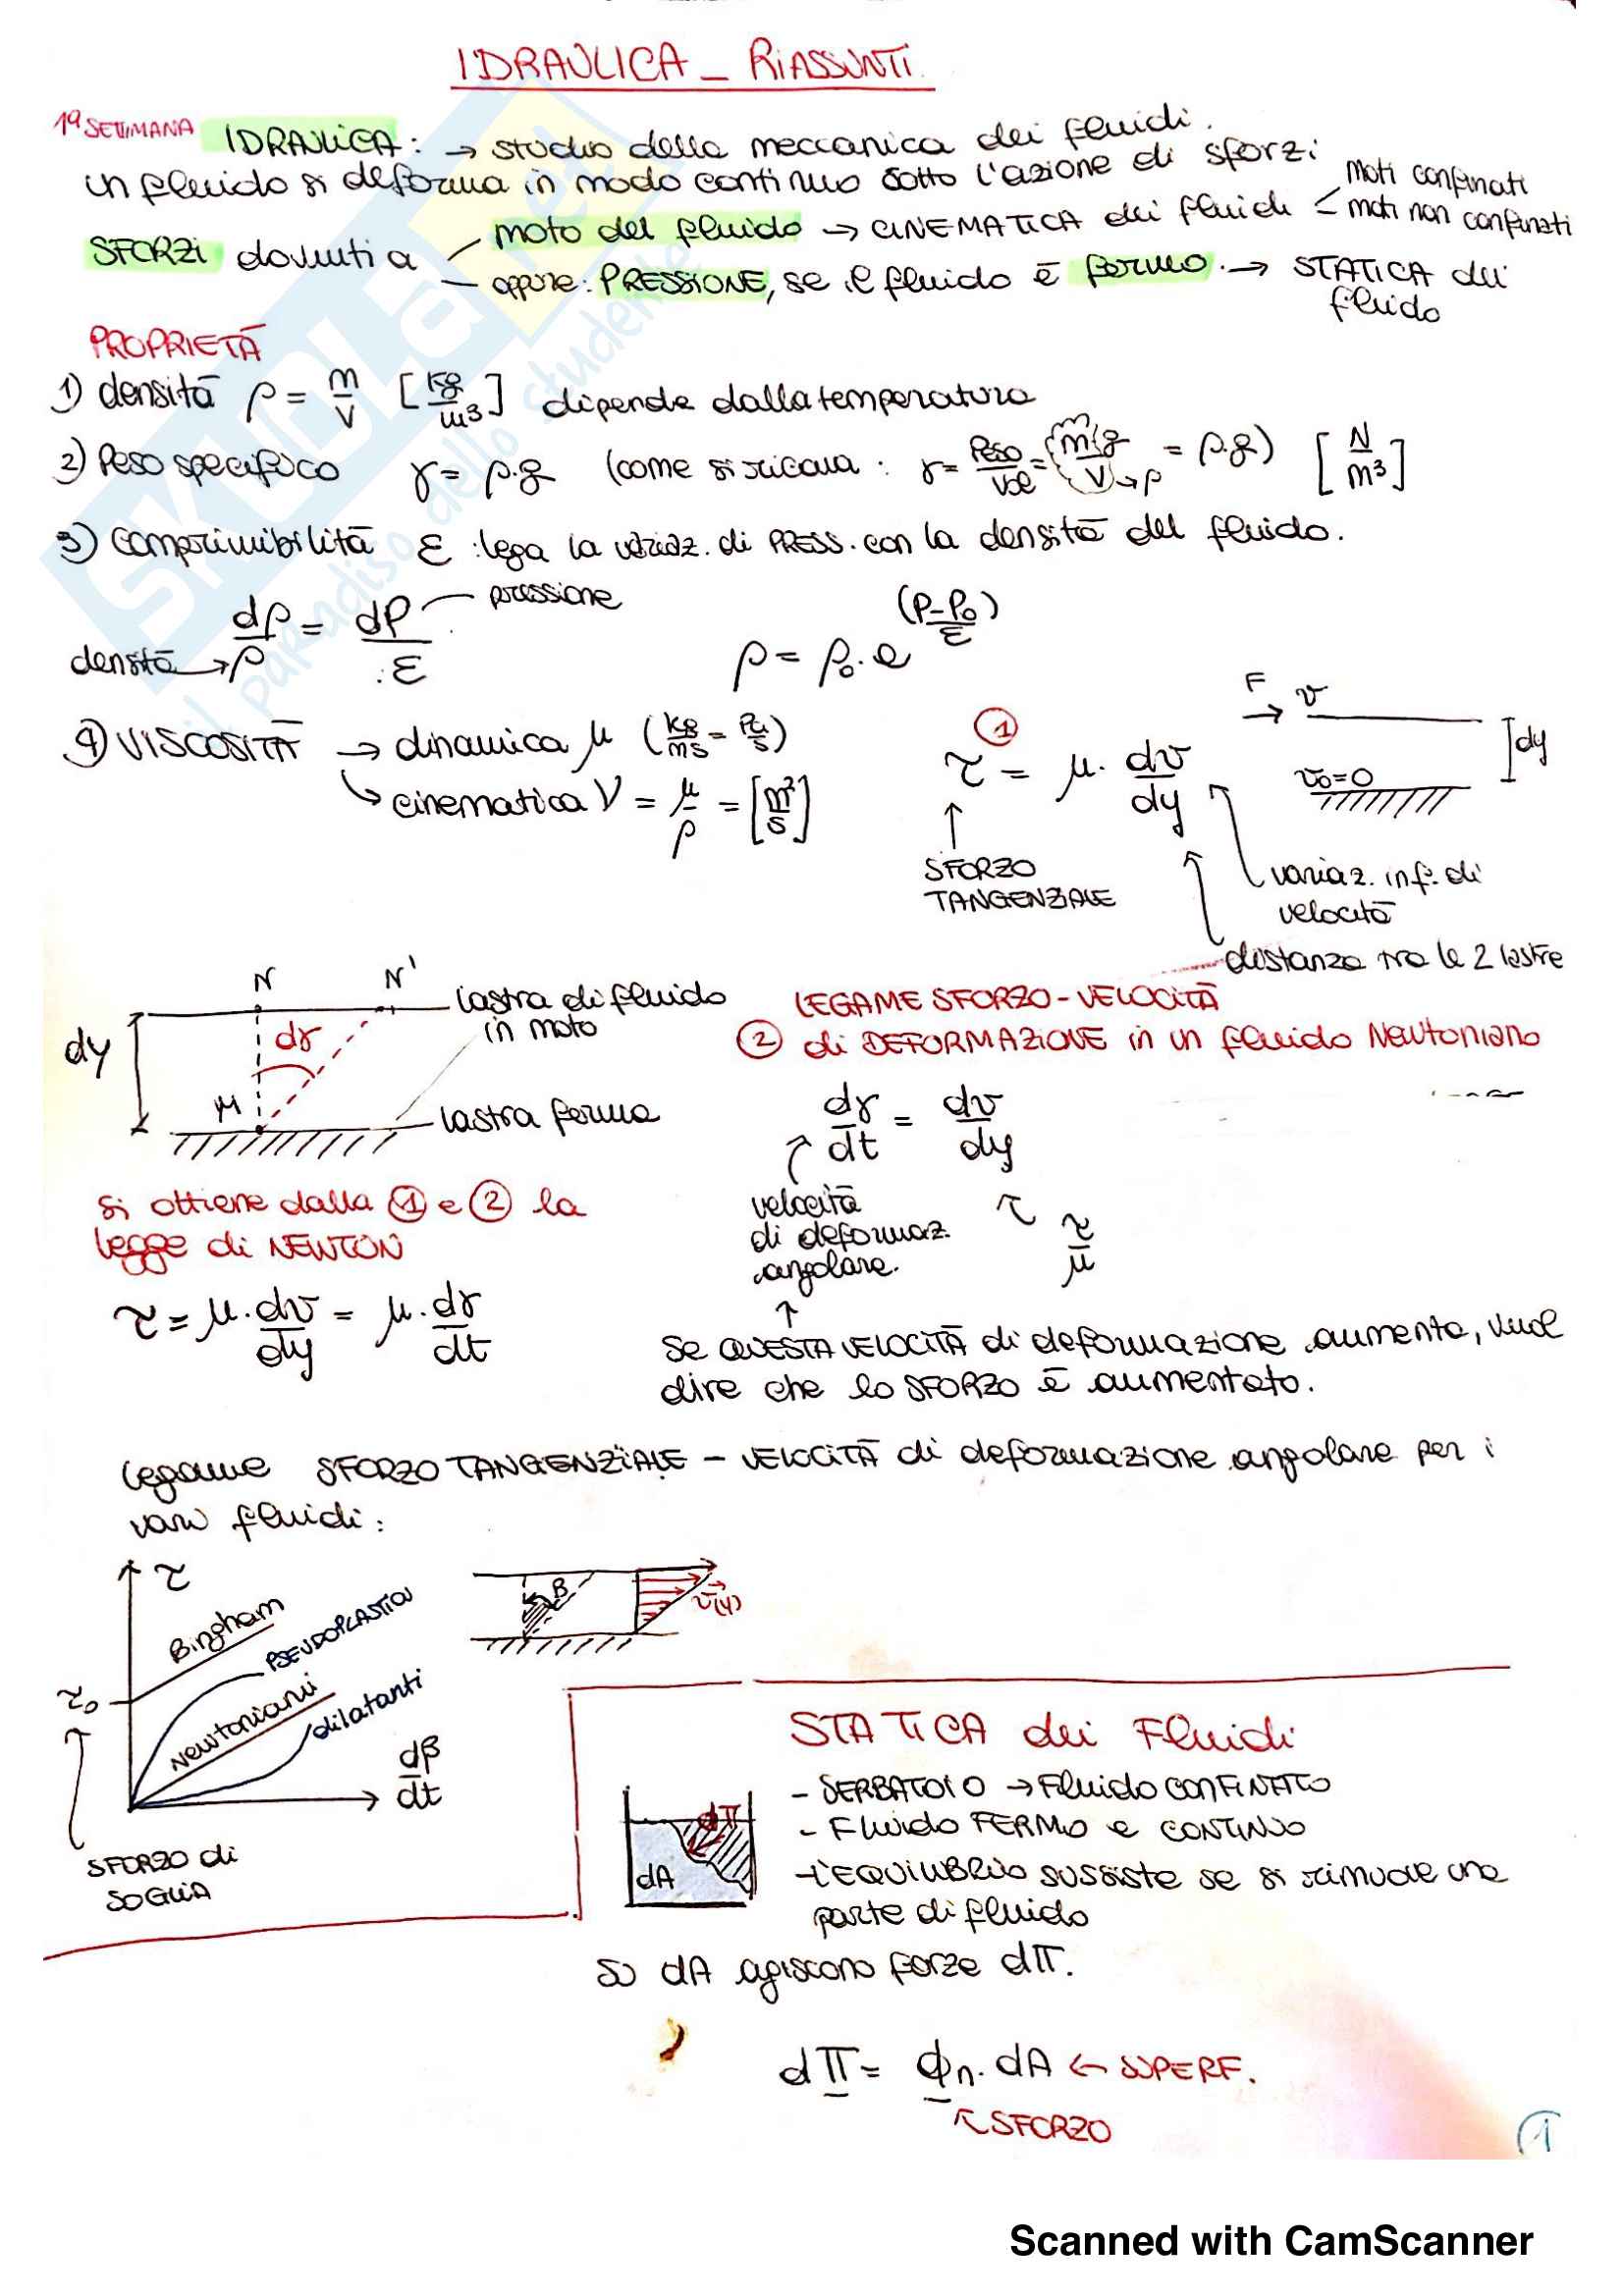 IDRAULICA _ RIASSUNTI
1ª SETTIMANA IDRAULICA: → studio della meccanica dei fluidi.
un fluido si deforma in modo continuo sotto l'azione di sforzi
SFORZI dovuti a
moto del fluido → CINEMATICA dei fluidi < moti confinati
moti non confinati
oppure: PRESSIONE, se il fluido è fermo. → STATICA dei
fluido
PROPRIETÀ
1) densità ρ = m/V [kg/m³] dipende dalla temperatura
2) Peso specifico γ = ρ·g (come si ricava: γ = Peso/Vol = m·g/V → ρ = ρ·g) [N/m³]
3) comprimibilità ε : lega la variaz. di PRESS. con la densità del fluido.
dρ/ρ = dP/ε
pressione
densità →
ρ = ρ₀·e^((P-P₀)/ε)
4) VISCOSITÀ → dinamica μ (kg/ms = Pa/s)
↳ cinematica ν = μ/ρ = [m²/s]
①
τ = μ · dv/dy
F → v
v₀=0
dy
SFORZO
TANGENZIALE
variaz. inf. di
velocità
distanza tra le 2 lastre
N N'
dy
dγ
M
lastra di fluido
in moto
lastra ferma
LEGAME SFORZO-VELOCITÀ
② di DEFORMAZIONE in un fluido Newtoniano
dγ/dt = dv/dy
velocità
di deformaz.
angolare.
τ τ/μ
si ottiene dalla ① e ② la
legge di NEWTON
τ = μ · dv/dy = μ · dγ/dt
Se QUESTA VELOCITÀ di deformazione aumenta, vuol
dire che lo SFORZO è aumentato.
Legame SFORZO TANGENZIALE - VELOCITÀ di deformazione angolare per i
vari fluidi:
τ
Bingham
PSEUDOPLASTICI
Newtoniani
dilatanti
τ₀
dβ/dt
SFORZO di
SOGLIA
β
v(y)
STATICA dei Fluidi
- SERBATOIO → Fluido CONFINATO
- Fluido FERMO e CONTINUO
- L'EQUILIBRIO sussiste se si rimuove una
parte di fluido
dΠ
dA
SU dA agiscono forze dΠ.
dΠ = ϕn · dA ← SUPERF.
↖ SFORZO
1
SKUOLA.net
il paradiso dello studente
Scanned with CamScanner